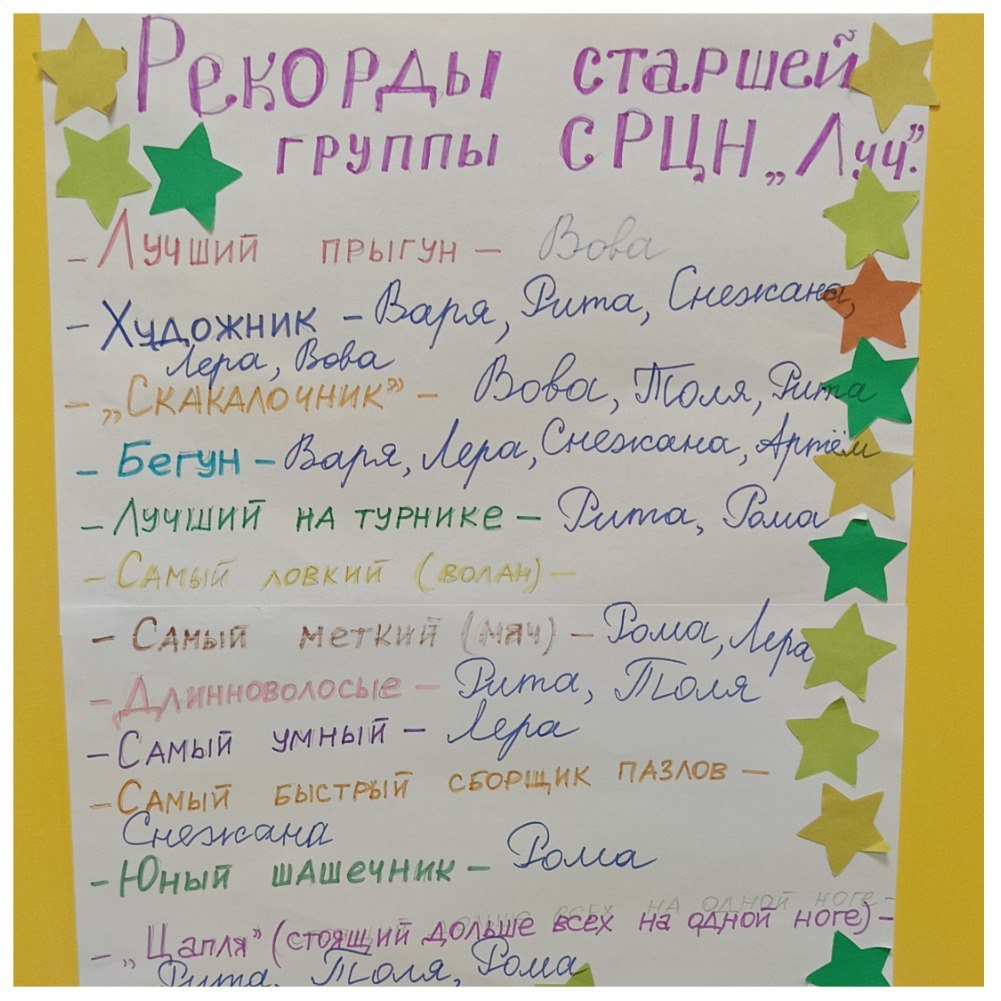 Рекорды старшей
группы СРЦН „Луч".
- Лучший прыгун - Вова
- Художник - Варя, Рита, Снежана,
Лера, Вова
- „Скакалочник" - Вова, Толя, Рита
- Бегун - Варя, Лера, Снежана, Артём
- Лучший на турнике - Рита, Рома
- Самый ловкий (волан) -
- Самый меткий (мяч) - Рома, Лера
- Длинноволосые - Рита, Толя
- Самый умный - Лера
- Самый быстрый сборщик пазлов -
Снежана
- Юный шашечник - Рома
- „Цапля" (стоящий дольше всех на одной ноге) -
Рита, Толя, Рома